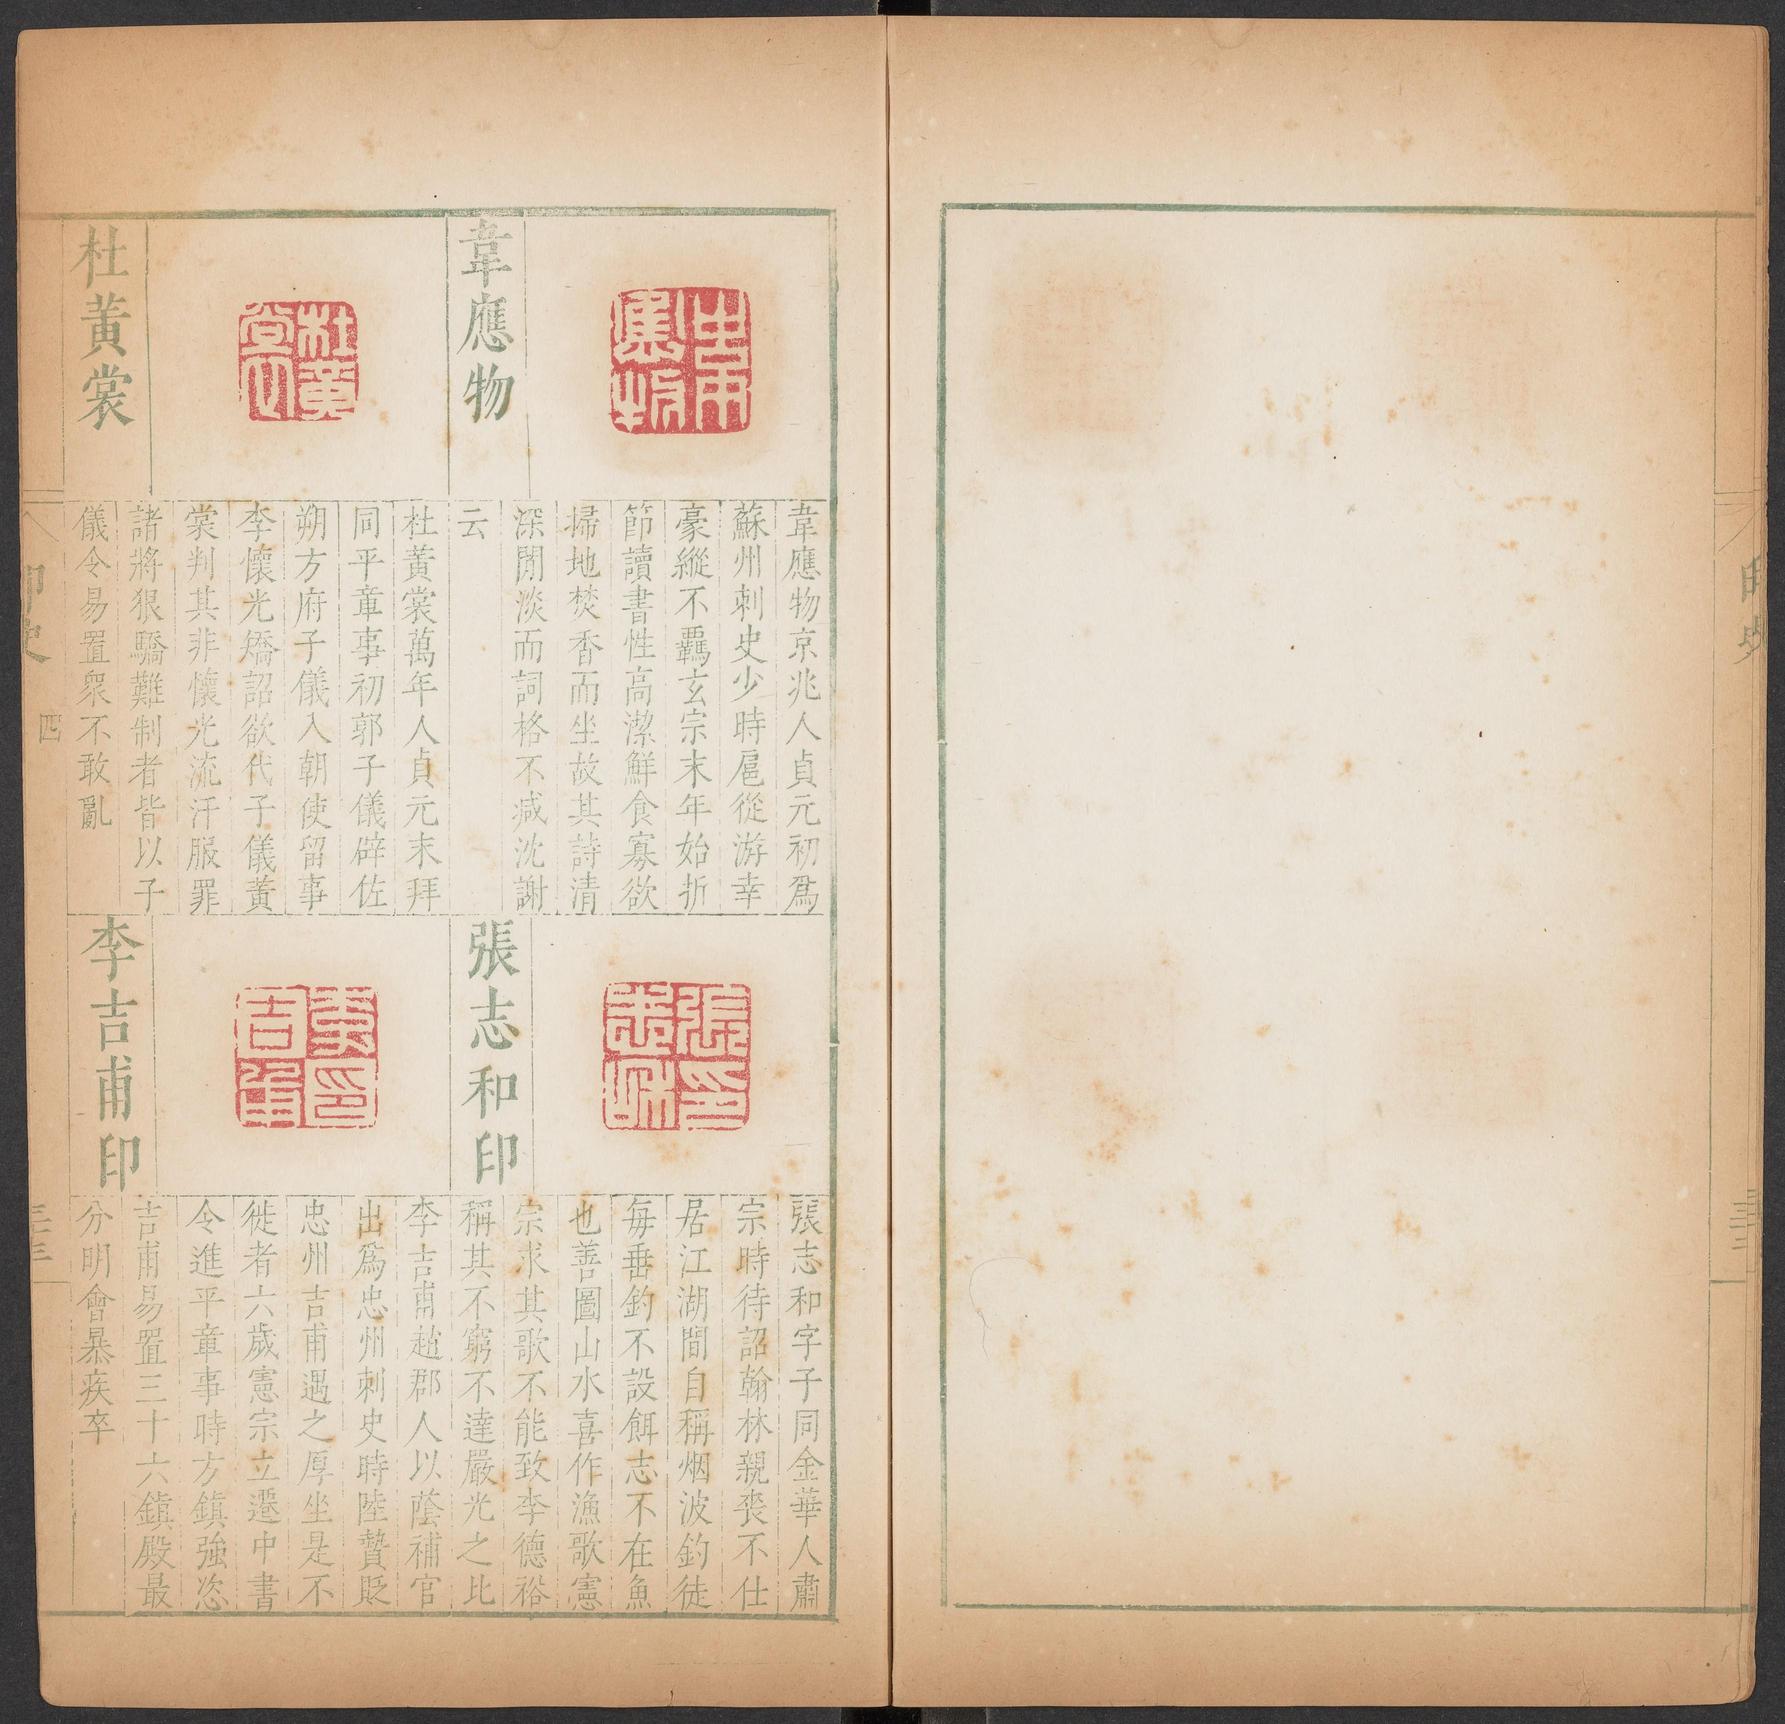 韋應物
韋應物京兆人貞元初爲
蘇州刺史少時扈從游幸
豪縱不羈玄宗末年始折
節讀書性高潔鮮食寡欲
掃地焚香而坐故其詩清
深閒淡而詞格不減沈謝
云
杜黃裳
杜黃裳
杜黃裳萬年人貞元末拜
同平章事初郭子儀辟佐
朔方府子儀入朝使留事
李懷光矯詔欲代子儀黃
裳判其非懷光流汗服罪
諸將狠驕難制者皆以子
儀令易置衆不敢亂
張志和印
張志和印
張志和字子同金華人肅
宗時待詔翰林親喪不仕
居江湖間自稱烟波釣徒
每垂釣不設餌志不在魚
也善圖山水喜作漁歌憲
宗求其歌不能致李德裕
稱其不窮不達嚴光之比
李吉甫印
李吉甫趙郡人以蔭補官
出爲忠州刺史時陸贄貶
忠州吉甫遇之厚坐是不
徙者六歲憲宗立遷中書
令進平章事時方鎮強恣
吉甫易置三十六鎮殿最
分明會暴疾卒
印史
四